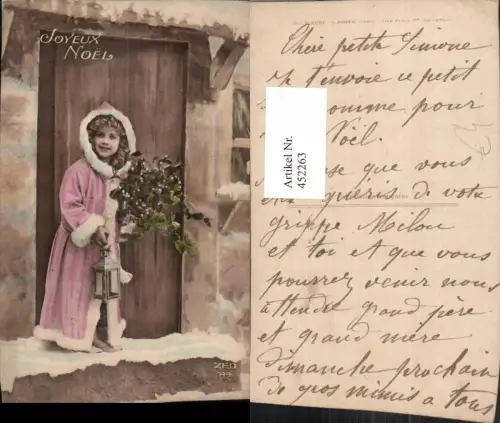 JOYEUX
NOËL
ZED
Chère petite Simone
Je t'envoie ce petit
comme pour
Noël.
que vous
gueris de votre
grippe Milou
et toi et que vous
pourrez venir nous
attendre grand père
et grand mère
dimanche prochain
De gros mimis a tous
Artikel Nr.
452263